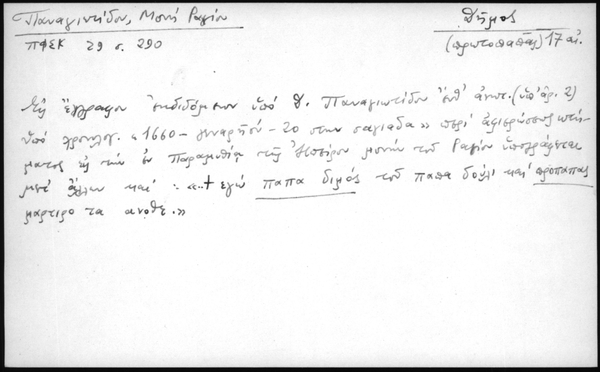 Παναγιωτίδου, Μονή Ραγίου
Δῆμος
ΠΦΣΚ 29 σ. 290
(πρωτοπαπᾶς) 17 αἰ.
Εἰς ἔγγραφον ἐκδιδόμενον ὑπό Δ. Παναγιωτίδου ἔνθ' ἀνωτ. (ὑπ' ἀρ. 2)
ὑπό χρονολογ. «1660 - γεναρῆου - 20 στην σαγιαδα» περί ἀφιερώσεως κτή-
ματος εἰς τήν ἐν Παραμυθίᾳ τῆς Ἠπείρου μονήν τοῦ Ραγίου ὑπογράφεται
μετ' ἄλλων καί: «..+ εγώ παπα διμός τοῦ παπα δούλι καί προπαπας
μαρτιρο τα ανοθε.»